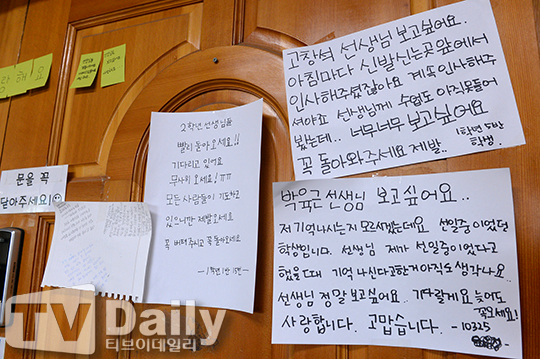 랑해요
고창석 선생님 보고싶어요..
아침마다 신발신는곳앞에서
인사해주셨잖아요 계속 인사해주
셔야죠 선생님께 수업도 아직못들어
봤는데.. 너무너무 보고싶어요
꼭 돌아와주세요 제발..
1학년 5반
학생.
2학년 선생님들
빨리 돌아오세요!!
기다리고 있어요
무사히 오세요!ㅠㅠ
모든 사람들이 기도하고
있으니깐 제발오세요
꼭 버텨주시고 꼭 돌아오세요
-1학년 1반 15번-
문을 꼭
닫아주세요!
박육근 선생님 보고싶어요..
저 기억나시는지 모르시겠는데요 선일중이었던
학생입니다. 선생님 제가 선일중이었다고
했을때 기억 나신다고한거 아직도 생각나요..
선생님 정말 보고싶어요.. 기다릴게요 늦어도
꼭오세요!
사랑합니다. 고맙습니다. -10325
TV Daily
티브이데일리